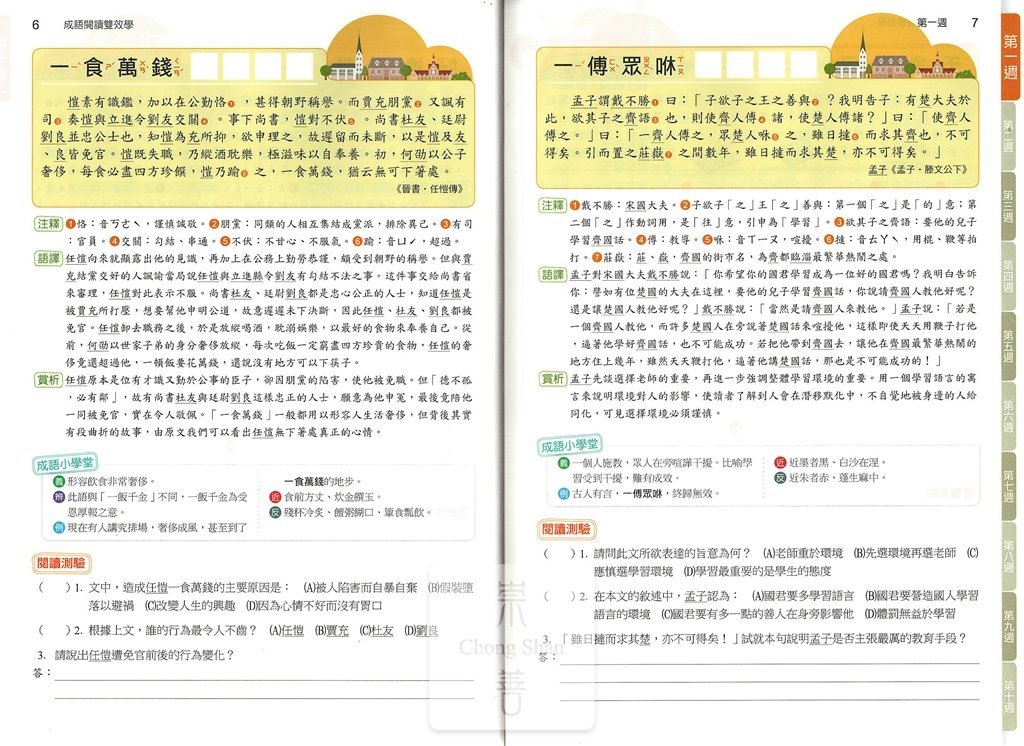 6 成語閱讀雙效學
一食萬錢
愷素有識鑑,加以在公勤恪❶,甚得朝野稱譽。而賈充朋黨❷又諷有
司❸奏愷與立進令劉友交關❹。事下尚書,愷對不伏❺。尚書杜友、廷尉
劉良並忠公士也,知愷為充所抑,欲申理之,故遲留而未斷,以是愷及友
、良皆免官。愷既失職,乃縱酒耽樂,極滋味以自奉養。初,何劭以公子
奢侈,每食必盡四方珍饌,愷乃踰❻之,一食萬錢,猶云無可下箸處。
《晉書·任愷傳》
注釋 ❶恪:音ㄎㄜˋ,謹慎誠敬。❷朋黨:同類的人相互集結成黨派,排除異己。❸有司
:官員。❹交關:勾結、串通。❺不伏:不甘心、不服氣。❻踰:音ㄩˊ,超過。
語譯 任愷向來就顯露出他的見識,再加上在公務上勤勞恭謹,頗受到朝野的稱譽。但與賈
充結黨交好的人諷諭當局說任愷與立進縣令劉友有勾結不法之事。這件事交給尚書省
來審理,任愷對此表示不服。尚書杜友、廷尉劉良都是忠心公正的人士,知道任愷是
被賈充所打壓,想要幫他申明公道,故意遲遲未下決斷,因此任愷、杜友、劉良都被
免官。任愷卸去職務之後,於是放縱喝酒,耽溺娛樂,以最好的食物來奉養自己。從
前,何劭以世家子弟的身分奢侈放縱,每次吃飯一定窮盡四方珍貴的食物,任愷的奢
侈竟還超過他,一頓飯要花萬錢,還說沒有地方可以下筷子。
賞析 任愷原本是位有才識又勤於公事的臣子,卻因朋黨的陷害,使他被免職。但「德不孤
,必有鄰」,故有尚書杜友與廷尉劉良這樣忠正的人士,願意為他申冤,最後竟陪他
一同被免官,實在令人敬佩。「一食萬錢」一般都用以形容人生活奢侈,但背後其實
有段曲折的故事,由原文我們可以看出任愷無下箸處真正的心情。
成語小學堂
義 形容飲食非常奢侈。
辨 此語與「一飯千金」不同,一飯千金為受
恩厚報之意。
例 現在有人講究排場,奢侈成風,甚至到了
一食萬錢的地步。
近 食前方丈、炊金饌玉。
反 殘杯冷炙、饘粥餬口、簞食瓢飲。
閱讀測驗
( )1. 文中,造成任愷一食萬錢的主要原因是: (A)被人陷害而自暴自棄 (B)假裝墮
落以避禍 (C)改變人生的興趣 (D)因為心情不好而沒有胃口
( )2. 根據上文,誰的行為最令人不齒? (A)任愷 (B)賈充 (C)杜友 (D)劉良
3. 請說出任愷遭免官前後的行為變化?
答:
第一週 7
一傅眾咻
孟子謂戴不勝❶曰:「子欲子之王之善與❷?我明告子:有楚大夫於
此,欲其子之齊語❸也,則使齊人傅❹諸,使楚人傅諸?」曰:「使齊人
傅之。」曰:「一齊人傅之,眾楚人咻❺之,雖日撻❻而求其齊也,不可
得矣。引而置之莊嶽❼之間數年,雖日撻而求其楚,亦不可得矣。」
孟子《孟子·滕文公下》
注釋 ❶戴不勝:宋國大夫。❷子欲子「之」王「之」善與:第一個「之」是「的」意;第
二個「之」作動詞用,是「往」意,引申為「學習」。❸欲其子之齊語:要他的兒子
學習齊國話。❹傅:教導。❺咻:音ㄒㄧㄡ,喧擾。❻撻:音ㄊㄚˋ,用棍、鞭等拍
打。❼莊嶽:莊、嶽,齊國的街市名,為齊都臨淄最繁華熱鬧之處。
語譯 孟子對宋國大夫戴不勝說:「你希望你的國君學習成為一位好的國君嗎?我明白告訴
你:譬如有位楚國的大夫在這裡,要他的兒子學習齊國話,你說請齊國人教他好呢?
還是讓楚國人教他好呢?」戴不勝說:「當然是請齊國人來教他。」孟子說:「若是
一個齊國人教他,而許多楚國人在旁說著楚國話來喧擾他,這樣即使天天用鞭子打他
,逼著他學好齊國話,也不可能成功。若把他帶到齊國去,讓他在齊國最繁華熱鬧的
地方住上幾年,雖然天天鞭打他,逼著他講楚國話,那也是不可能成功的!」
賞析 孟子先談選擇老師的重要,再進一步強調整體學習環境的重要。用一個學習語言的寓
言來說明環境對人的影響,使讀者了解到人會在潛移默化中,不自覺地被身邊的人給
同化,可見選擇環境必須謹慎。
成語小學堂
義 一個人施教,眾人在旁喧譁干擾。比喻學
習受到干擾,難有成效。
例 古人有言,一傅眾咻,終歸無效。
近 近墨者黑、白沙在涅。
反 近朱者赤、蓬生麻中。
閱讀測驗
( )1. 請問此文所欲表達的旨意為何? (A)老師重於環境 (B)先選環境再選老師 (C)
應慎選學習環境 (D)學習最重要的是學生的態度
( )2. 在本文的敘述中,孟子認為: (A)國君要多學習語言 (B)國君要營造國人學習
語言的環境 (C)國君要有多一點的善人在身旁影響他 (D)體罰無益於學習
3. 「雖日撻而求其楚,亦不可得矣!」試就本句說明孟子是否主張最嚴厲的教育手段?
答:
第一週
第二週
第三週
第四週
第五週
第六週
第七週
第八週
第九週
第十週
崇
Chong Shan
善